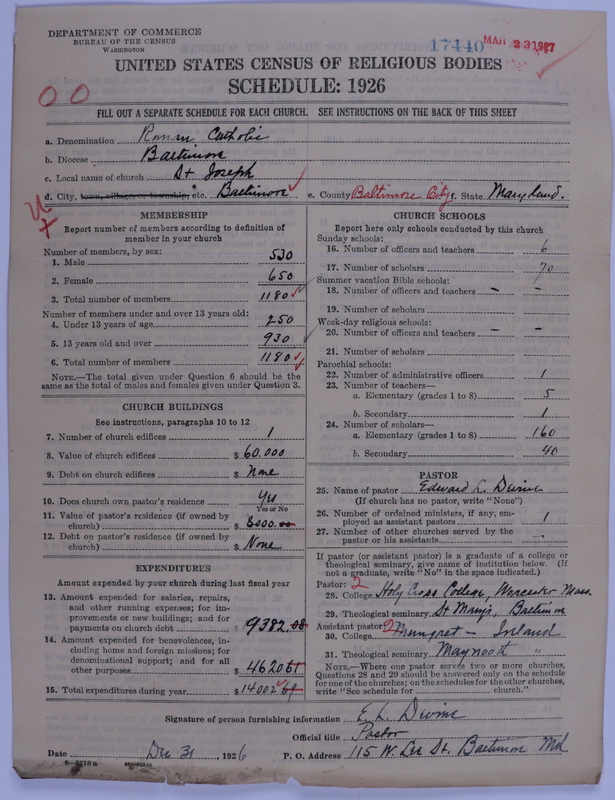 DEPARTMENT OF COMMERCE
BUREAU OF THE CENSUS
WASHINGTON
17440
MAR 23 1927
UNITED STATES CENSUS OF RELIGIOUS BODIES
SCHEDULE: 1926
00
FILL OUT A SEPARATE SCHEDULE FOR EACH CHURCH. SEE INSTRUCTIONS ON THE BACK OF THIS SHEET
a. Denomination Roman Catholic
b. Diocese Baltimore
c. Local name of church St Joseph
d. City, town, village, or township, etc. Baltimore e. County Baltimore City f. State Maryland.
MEMBERSHIP
Report number of members according to definition of
member in your church
Number of members, by sex:
1. Male 530
2. Female 650
3. Total number of members 1180
Number of members under and over 13 years old:
4. Under 13 years of age 250
5. 13 years old and over 930
6. Total number of members 1180
NOTE.—The total given under Question 6 should be the
same as the total of males and females given under Question 3.
CHURCH BUILDINGS
See instructions, paragraphs 10 to 12
7. Number of church edifices 1
8. Value of church edifices $ 60.000
9. Debt on church edifices $ None
10. Does church own pastor's residence Yes
Yes or No
11. Value of pastor's residence (if owned by
church) $ 8000.00
12. Debt on pastor's residence (if owned by
church) $ None
EXPENDITURES
Amount expended by your church during last fiscal year
13. Amount expended for salaries, repairs,
and other running expenses; for im-
provements or new buildings; and for
payments on church debt $ 9382.08
14. Amount expended for benevolences, in-
cluding home and foreign missions; for
denominational support; and for all
other purposes $ 4620 61
15. Total expenditures during year $ 14002 69
CHURCH SCHOOLS
Report here only schools conducted by this church
Sunday schools:
16. Number of officers and teachers 6
17. Number of scholars 70
Summer vacation Bible schools:
18. Number of officers and teachers – –
19. Number of scholars
Week-day religious schools:
20. Number of officers and teachers – –
21. Number of scholars
Parochial schools:
22. Number of administrative officers 1
23. Number of teachers—
a. Elementary (grades 1 to 8) 5
b. Secondary 1
24. Number of scholars—
a. Elementary (grades 1 to 8) 160
b. Secondary 40
PASTOR
25. Name of pastor Edward L. Devine
(If church has no pastor, write "None")
26. Number of ordained ministers, if any, em-
ployed as assistant pastors 1
27. Number of other churches served by the
pastor or his assistants -
If pastor (or assistant pastor) is a graduate of a college or
theological seminary, give name of institution below. (If
not a graduate, write "No" in the space indicated.)
Pastor: 2
28. College Holy Cross College, Worcester Mass.
29. Theological seminary St Mary's, Baltimore
Assistant pastor: 2
30. College Mungret – Ireland
31. Theological seminary Maynooth "
NOTE.—Where one pastor serves two or more churches,
Questions 28 and 29 should be answered only on the schedule
for one of the churches; on the schedules for the other churches,
write "See schedule for church."
Signature of person furnishing information E. L. Devine
Official title Pastor
Date Dec 31, 1926 P. O. Address 115 W. Lee St. Baltimore Md